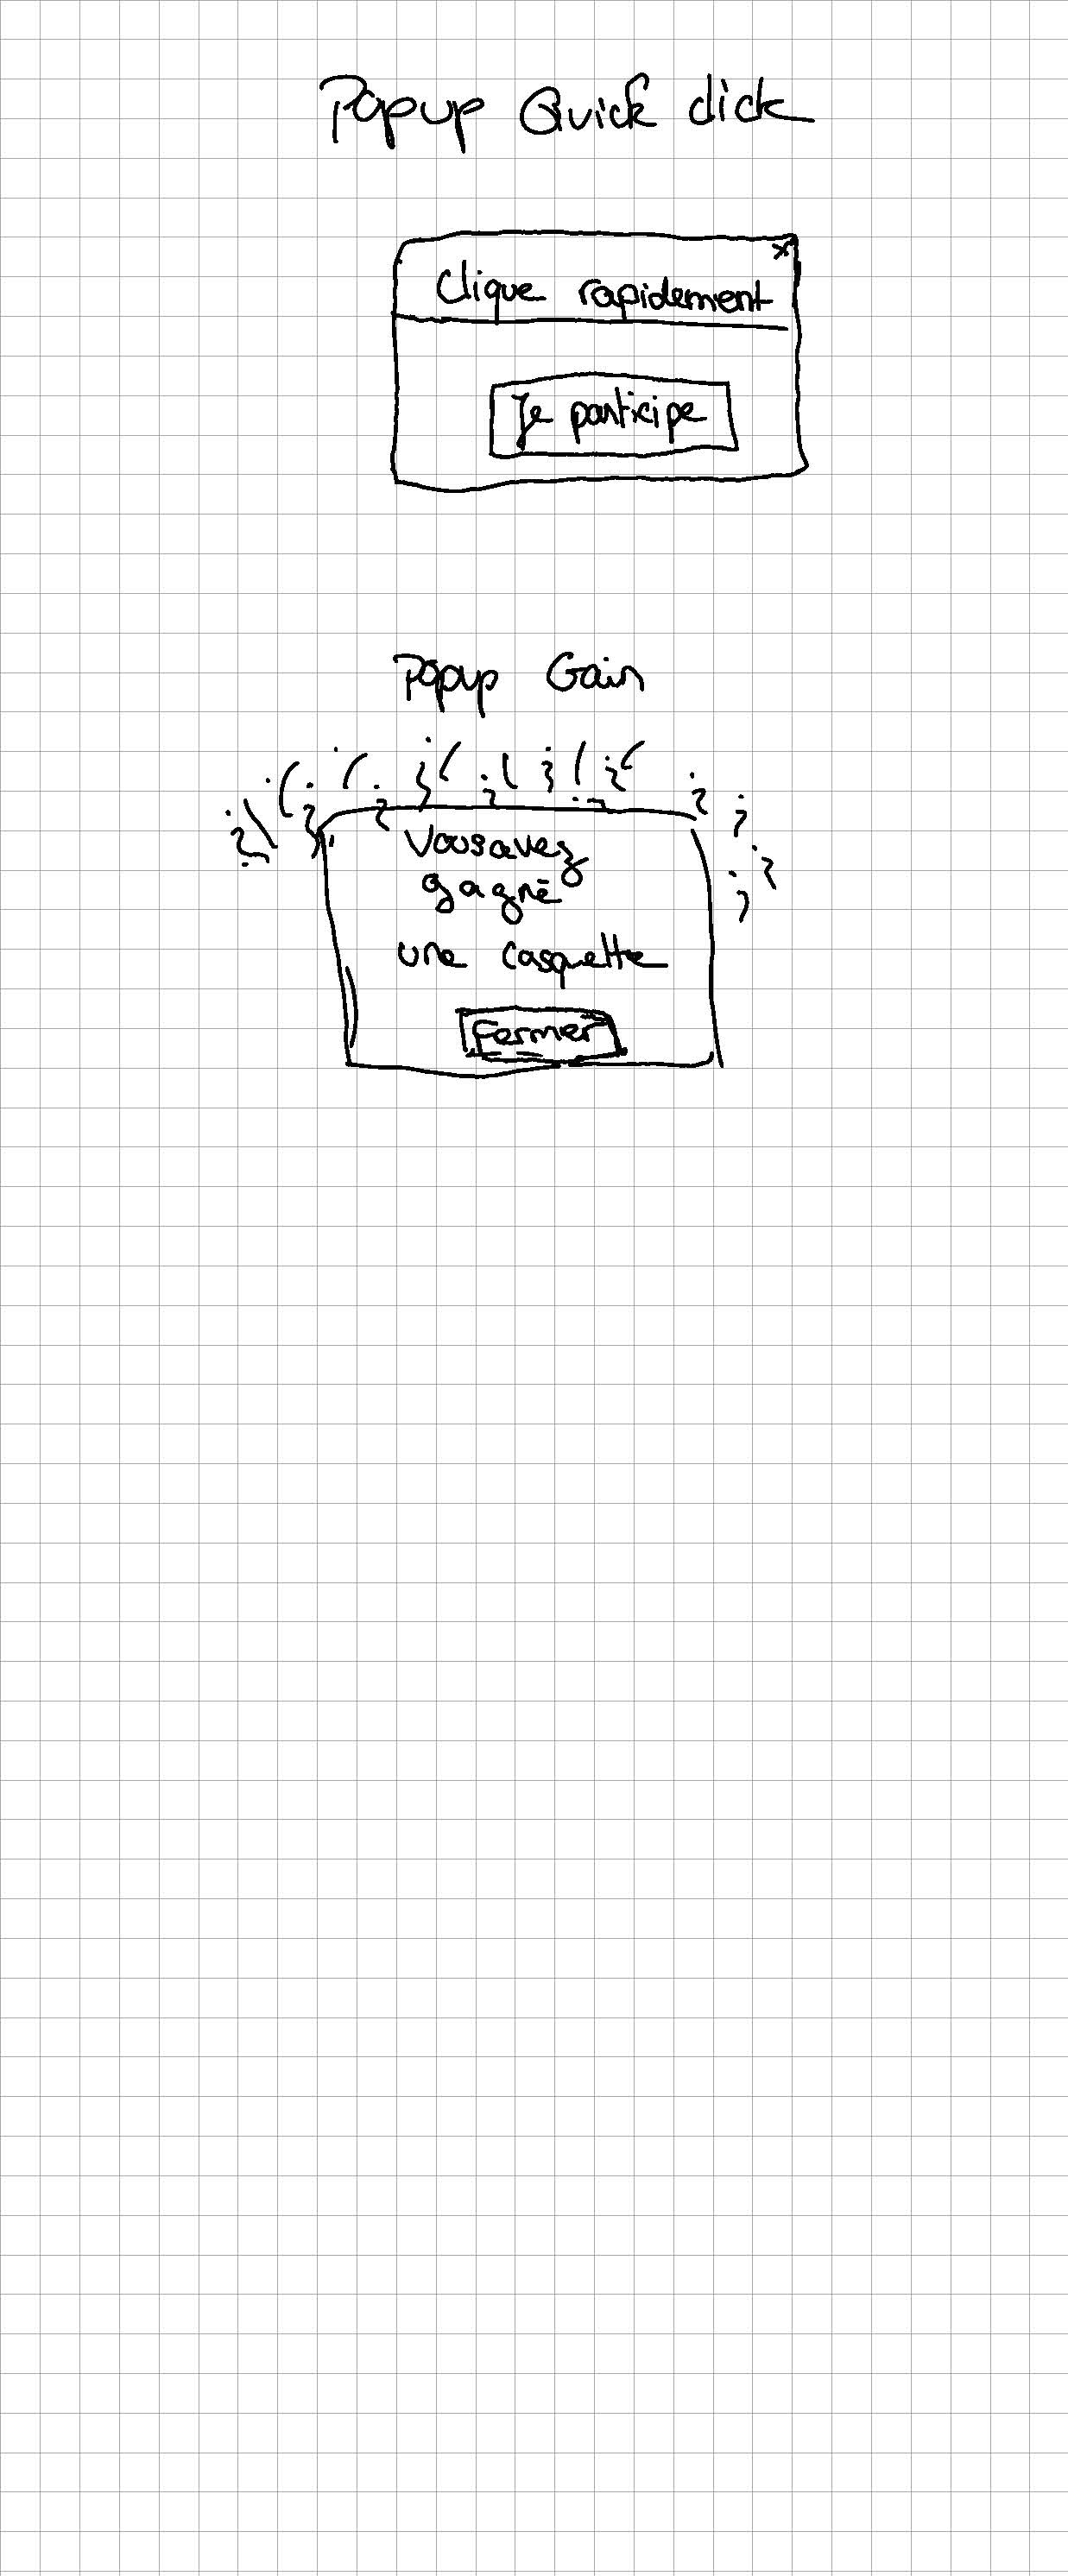 Popup Quick click
x
Clique rapidement
Je participe
Popup Gain
Vous avez
gagné
une casquette
Fermer